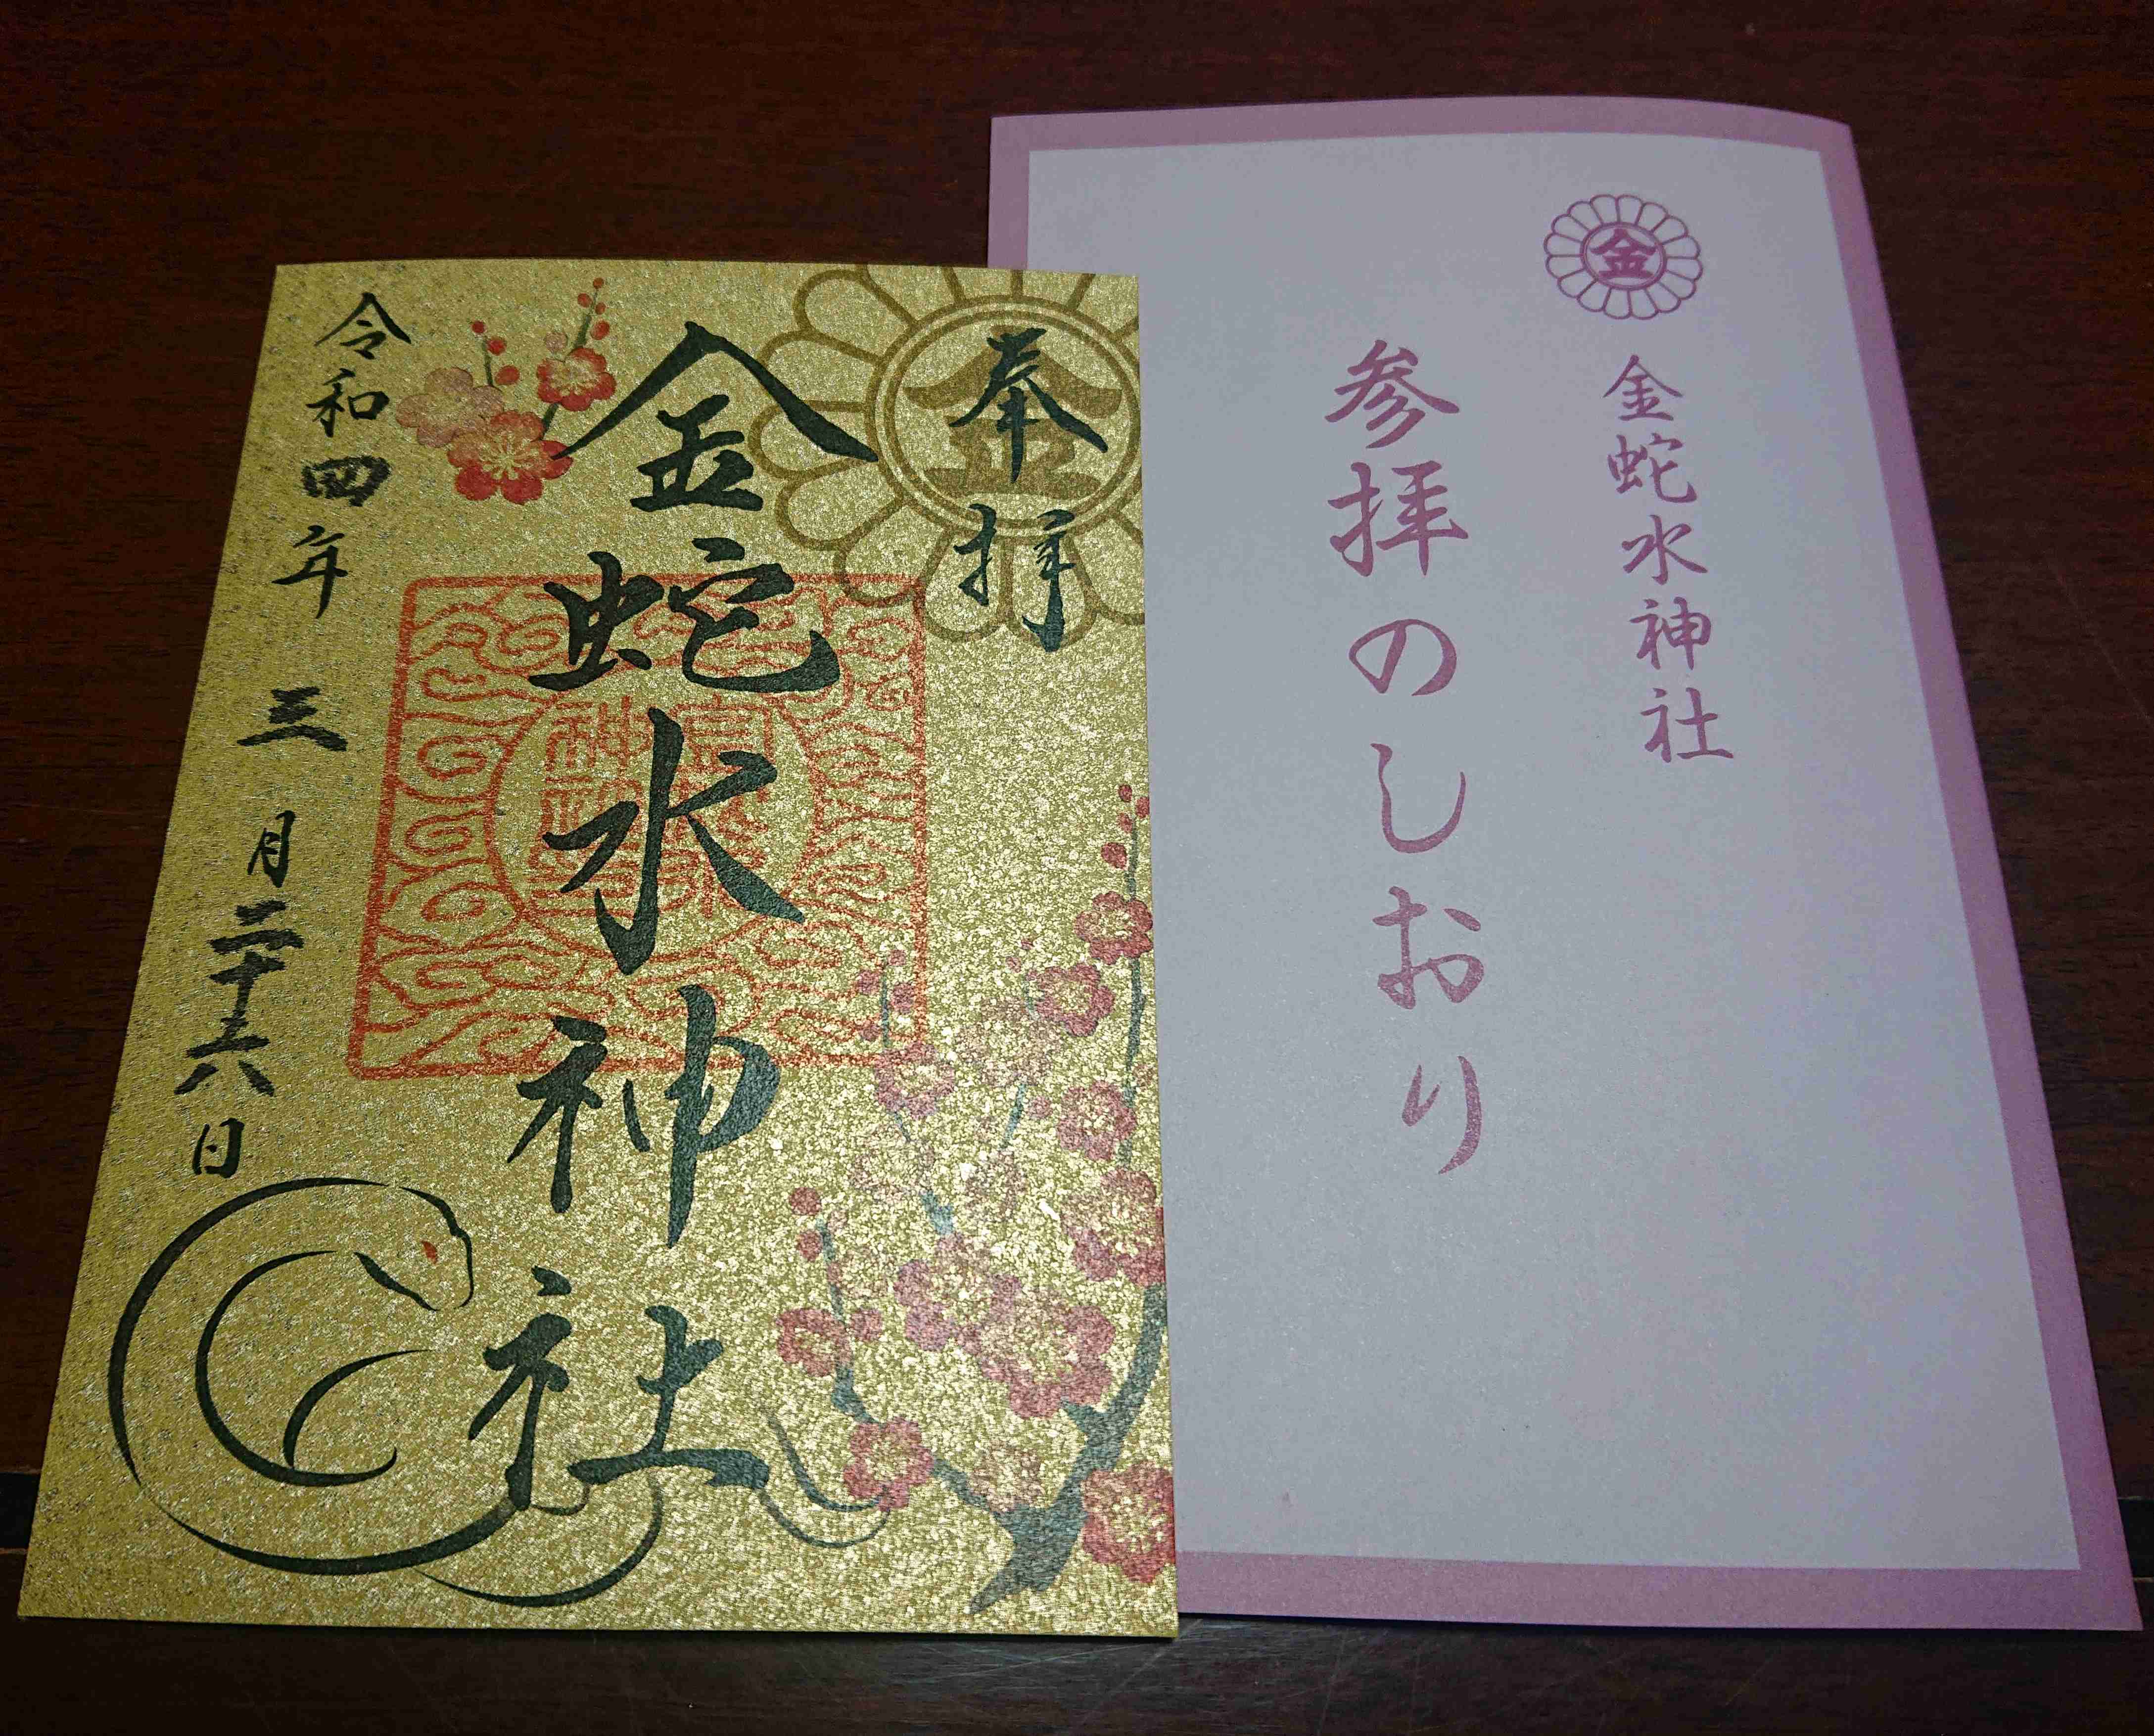 奉拝
金
金蛇水神社
令和四年三月二十六日
金
金蛇水神社
参拝のしおり